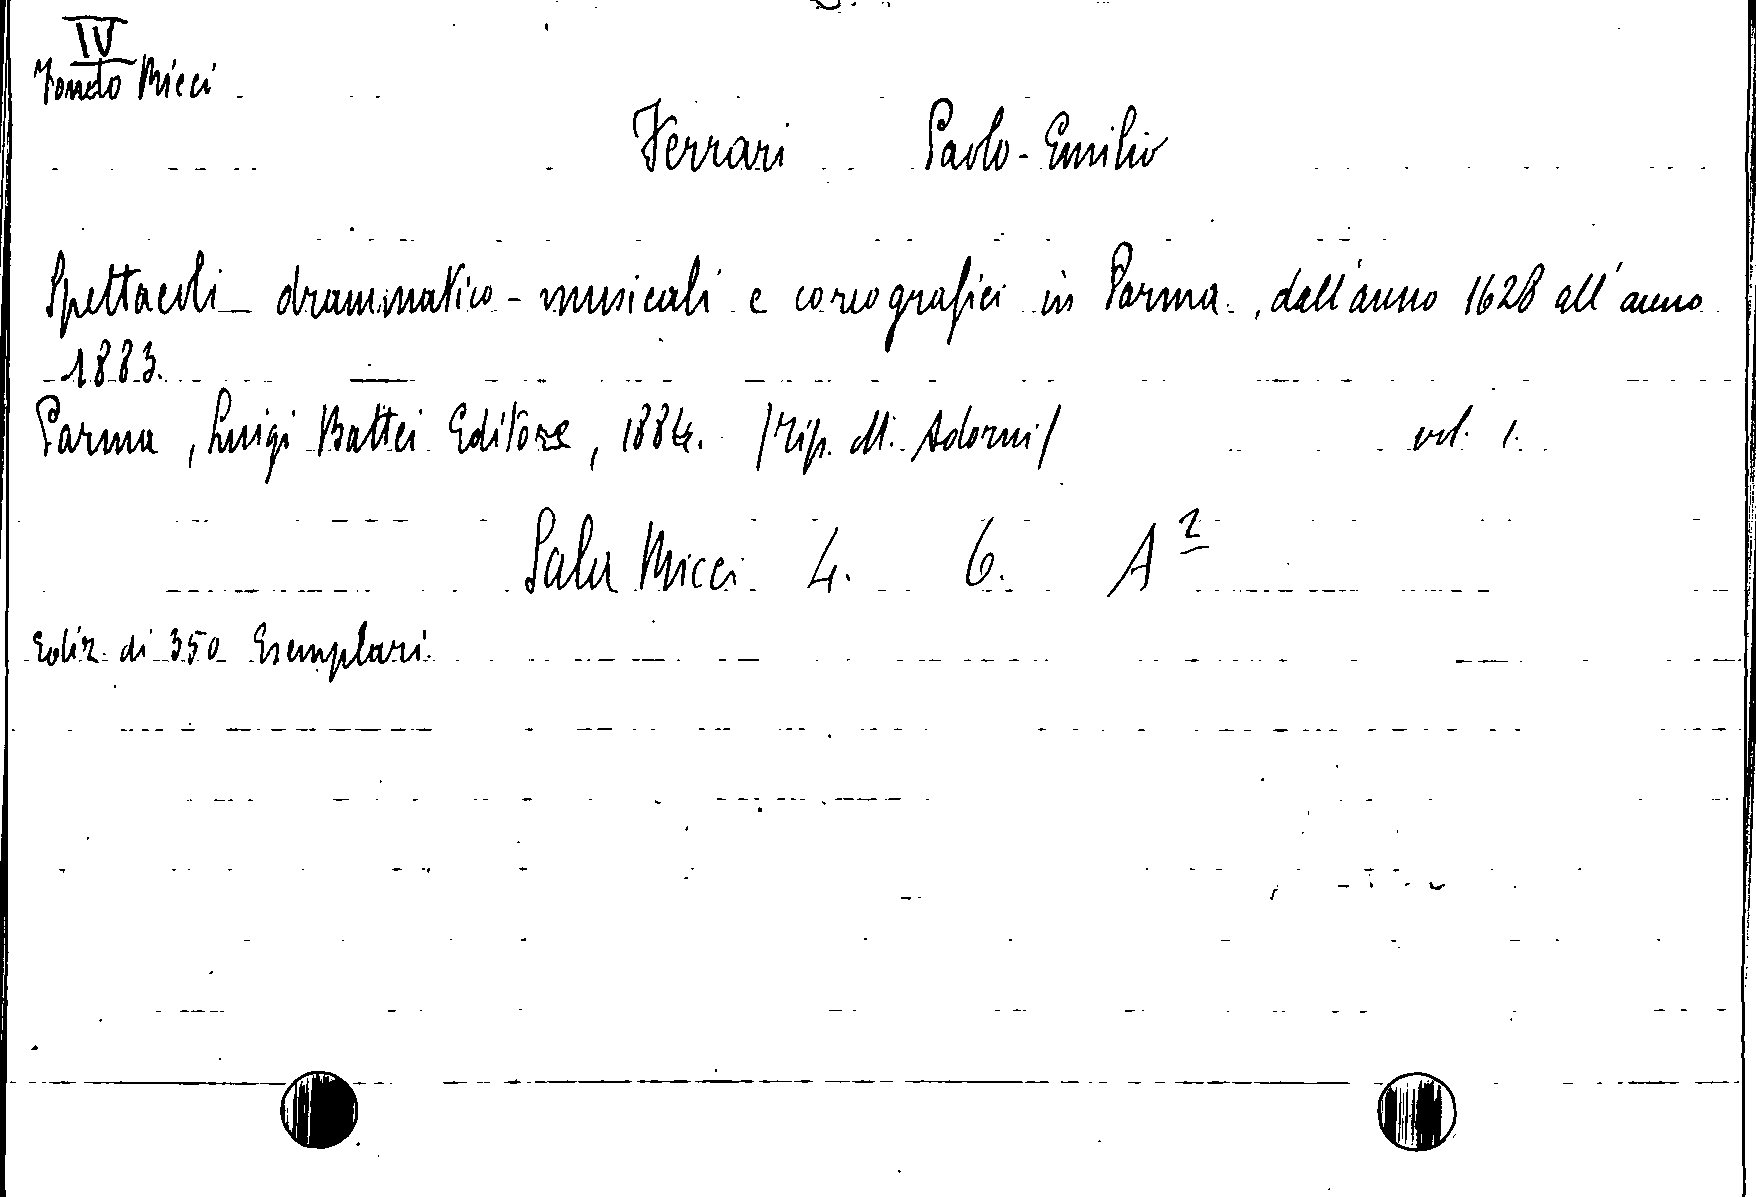 IV
Fondo Ricci
Ferrari Paolo-Emilio
Spettacoli drammatico-musicali e coreografici in Parma, dall'anno 1628 all'anno
1883.
Parma, Luigi Battei Editore, 1884. /tip. M. Adorni/ vol. 1.
Sala Ricci 4. 6. A²
Ediz. di 350 Esemplari.